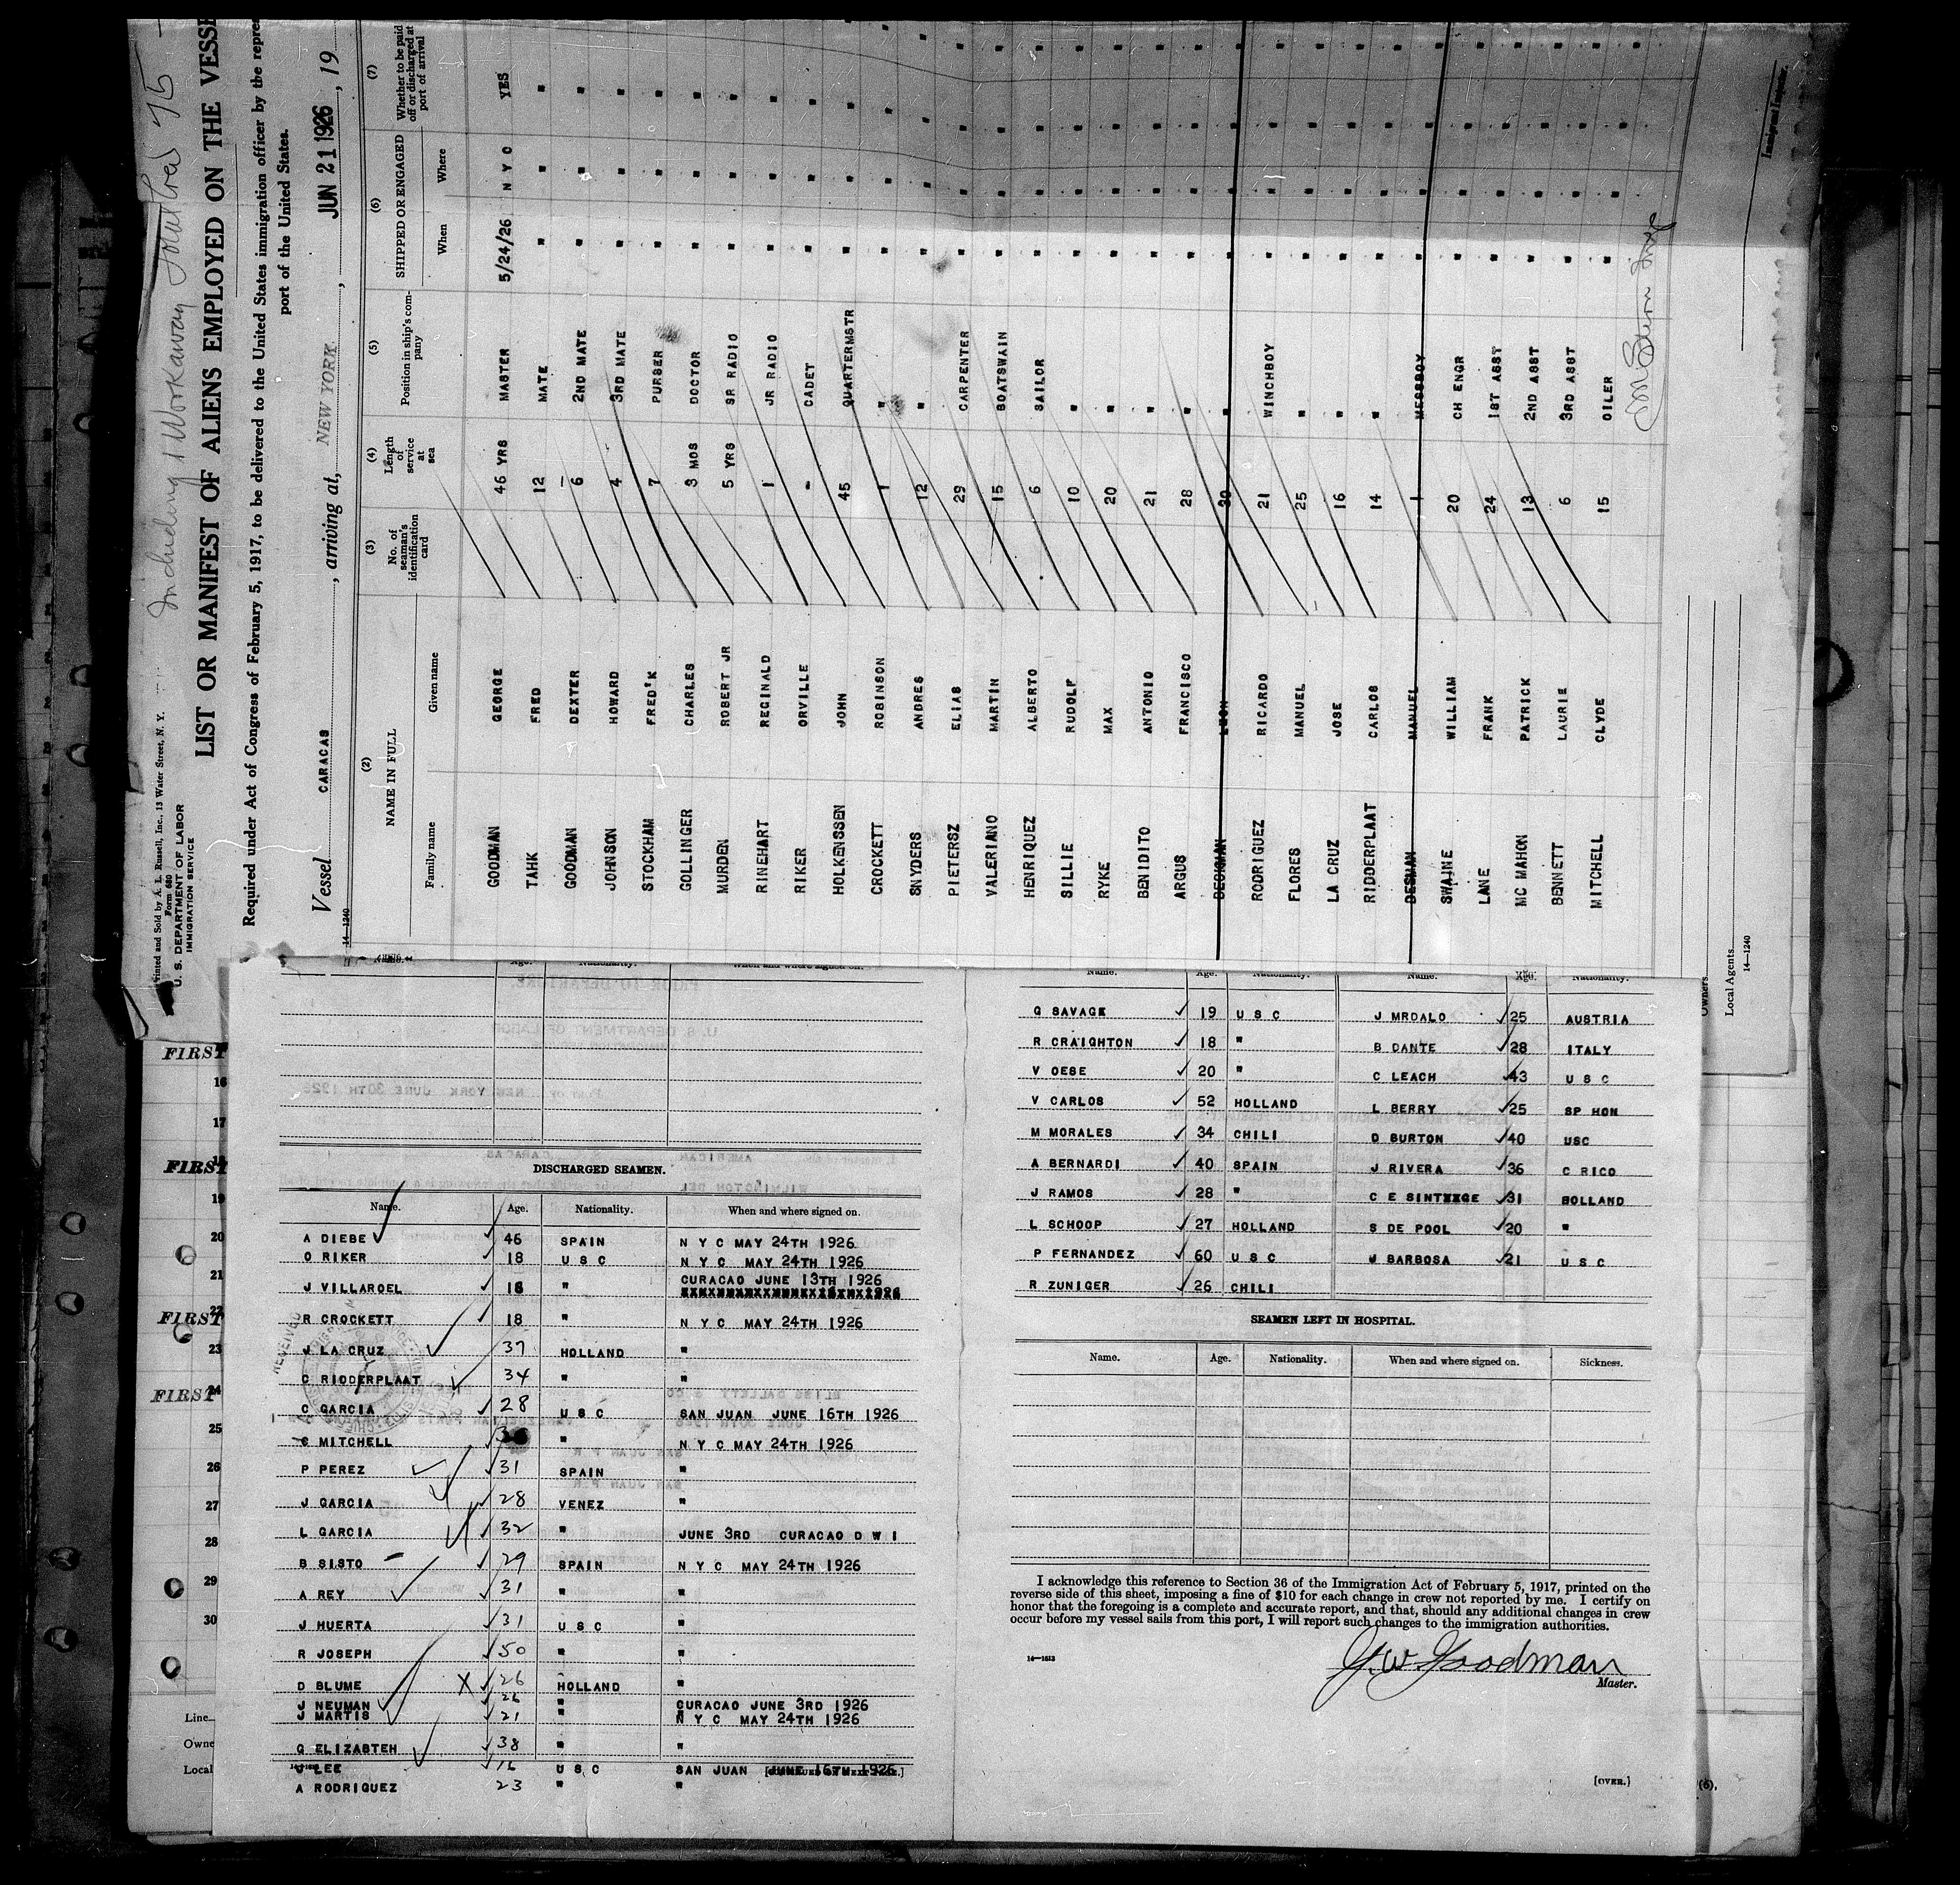 Including 1 Workaway Total Crew 75
Printed and Sold by A. L. Russell, Inc., 13 Water Street, N. Y.
Form 680
U. S. DEPARTMENT OF LABOR
IMMIGRATION SERVICE
LIST OR MANIFEST OF ALIENS EMPLOYED ON THE VESSE
Required under Act of Congress of February 5, 1917, to be delivered to the United States immigration officer by the repre
port of the United States.
Vessel CARACAS, arriving at, NEW YORK, JUN 21 1926, 19
14-1240
(2) (3) (4) (5) (6) (7)
NAME IN FULL No. of seaman's identification card Length of service at sea Position in ship's company SHIPPED OR ENGAGED Whether to be paid off or discharged at port of arrival
Family name Given name When Where
GOODMAN GEORGE 46 YRS MASTER 5/24/26 N Y C YES
TAHK FRED 12 MATE " " "
GOODMAN DEXTER 6 2ND MATE " " "
JOHNSON HOWARD 4 3RD MATE " " "
STOCKHAM FRED'K 7 PURSER " " "
GOLLINGER CHARLES 3 MOS DOCTOR " " "
MURDEN ROBERT JR 5 YRS SR RADIO " " "
RINEHART REGINALD 1 JR RADIO " " "
RIKER ORVILLE - CADET " " "
HOLKENSSEN JOHN 45 QUARTERMSTR " " "
CROCKETT ROBINSON 1 " " " "
SNYDERS ANDRES 12 " " " "
PIETERSZ ELIAS 29 CARPENTER " " "
VALERIANO MARTIN 15 BOATSWAIN " " "
HENRIQUEZ ALBERTO 6 SAILOR " " "
SILLIE RUDOLF 10 " " " "
RYKE MAX 20 " " " "
BENIDITO ANTONIO 21 " " " "
ARGUS FRANCISCO 28 " " " "
BECKMAN LEON 30 " " " "
RODRIGUEZ RICARDO 21 WINCHBOY " " "
FLORES MANUEL 25 " " " "
LA CRUZ JOSE 16 " " " "
RIDDERPLAAT CARLOS 14 " " " "
DESMAN MANUEL 1 MESSBOY " " "
SWAINE WILLIAM 20 CH ENGR " " "
LANE FRANK 24 1ST ASST " " "
MC MAHON PATRICK 13 2ND ASST " " "
BENNETT LAURIE 6 3RD ASST " " "
MITCHELL CLYDE 15 OILER " " "
Immigrant Inspector.
Owners
Local Agents
14-1240
FIRST
16
17
FIRST
19
20
21
FIRST
23
FIRST
25
26
27
28
29
30
Line
Owne
Local
Age. Nationality. When and where signed on.
DISCHARGED SEAMEN.
Name. Age. Nationality. When and where signed on.
A DIEBE 46 SPAIN N Y C MAY 24TH 1926
O RIKER 18 U S C N Y C MAY 24TH 1926
CURACAO JUNE 13TH 1926
J VILLAROEL 16 "
R CROCKETT 18 " N Y C MAY 24TH 1926
J LA CRUZ 37 HOLLAND "
C RIDDERPLAAT 34 " "
C GARCIA 28 U S C SAN JUAN JUNE 16TH 1926
C MITCHELL " N Y C MAY 24TH 1926
P PEREZ 31 SPAIN "
J GARCIA 28 VENEZ "
L GARCIA 32 " JUNE 3RD CURACAO D W I
B SISTO 29 SPAIN N Y C MAY 24TH 1926
A REY 31 " "
J HUERTA 31 U S C "
R JOSEPH 50 " "
D BLUME 26 HOLLAND "
J NEUMAN 26 " CURACAO JUNE 3RD 1926
J MARTIS 21 " N Y C MAY 24TH 1926
G ELIZABTEH 38 " "
J LEE 16 U S C SAN JUAN JUNE 16TH 1926
A RODRIQUEZ 23 " "
Name. Age. Nationality. Name. Age. Nationality.
G SAVAGE 19 U S C J MRDALO 25 AUSTRIA
R CRAIGHTON 18 " B DANTE 28 ITALY
V OESE 20 " C LEACH 43 U S C
V CARLOS 52 HOLLAND L BERRY 25 SP HON
M MORALES 34 CHILI D BURTON 40 USC
A BERNARDI 40 SPAIN J RIVERA 36 C RICO
J RAMOS 28 " C E SINTXXGE 31 HOLLAND
L SCHOOP 27 HOLLAND S DE POOL 20 "
P FERNANDEZ 60 U S C J BARBOSA 21 U S C
R ZUNIGER 26 CHILI
SEAMEN LEFT IN HOSPITAL.
Name. Age. Nationality. When and where signed on. Sickness.
I acknowledge this reference to Section 36 of the Immigration Act of February 5, 1917, printed on the
reverse side of this sheet, imposing a fine of $10 for each change in crew not reported by me. I certify on
honor that the foregoing is a complete and accurate report, and that, should any additional changes in crew
occur before my vessel sails from this port, I will report such changes to the immigration authorities.
14-1613
G. W. Goodman
Master.
[OVER.]
(6).